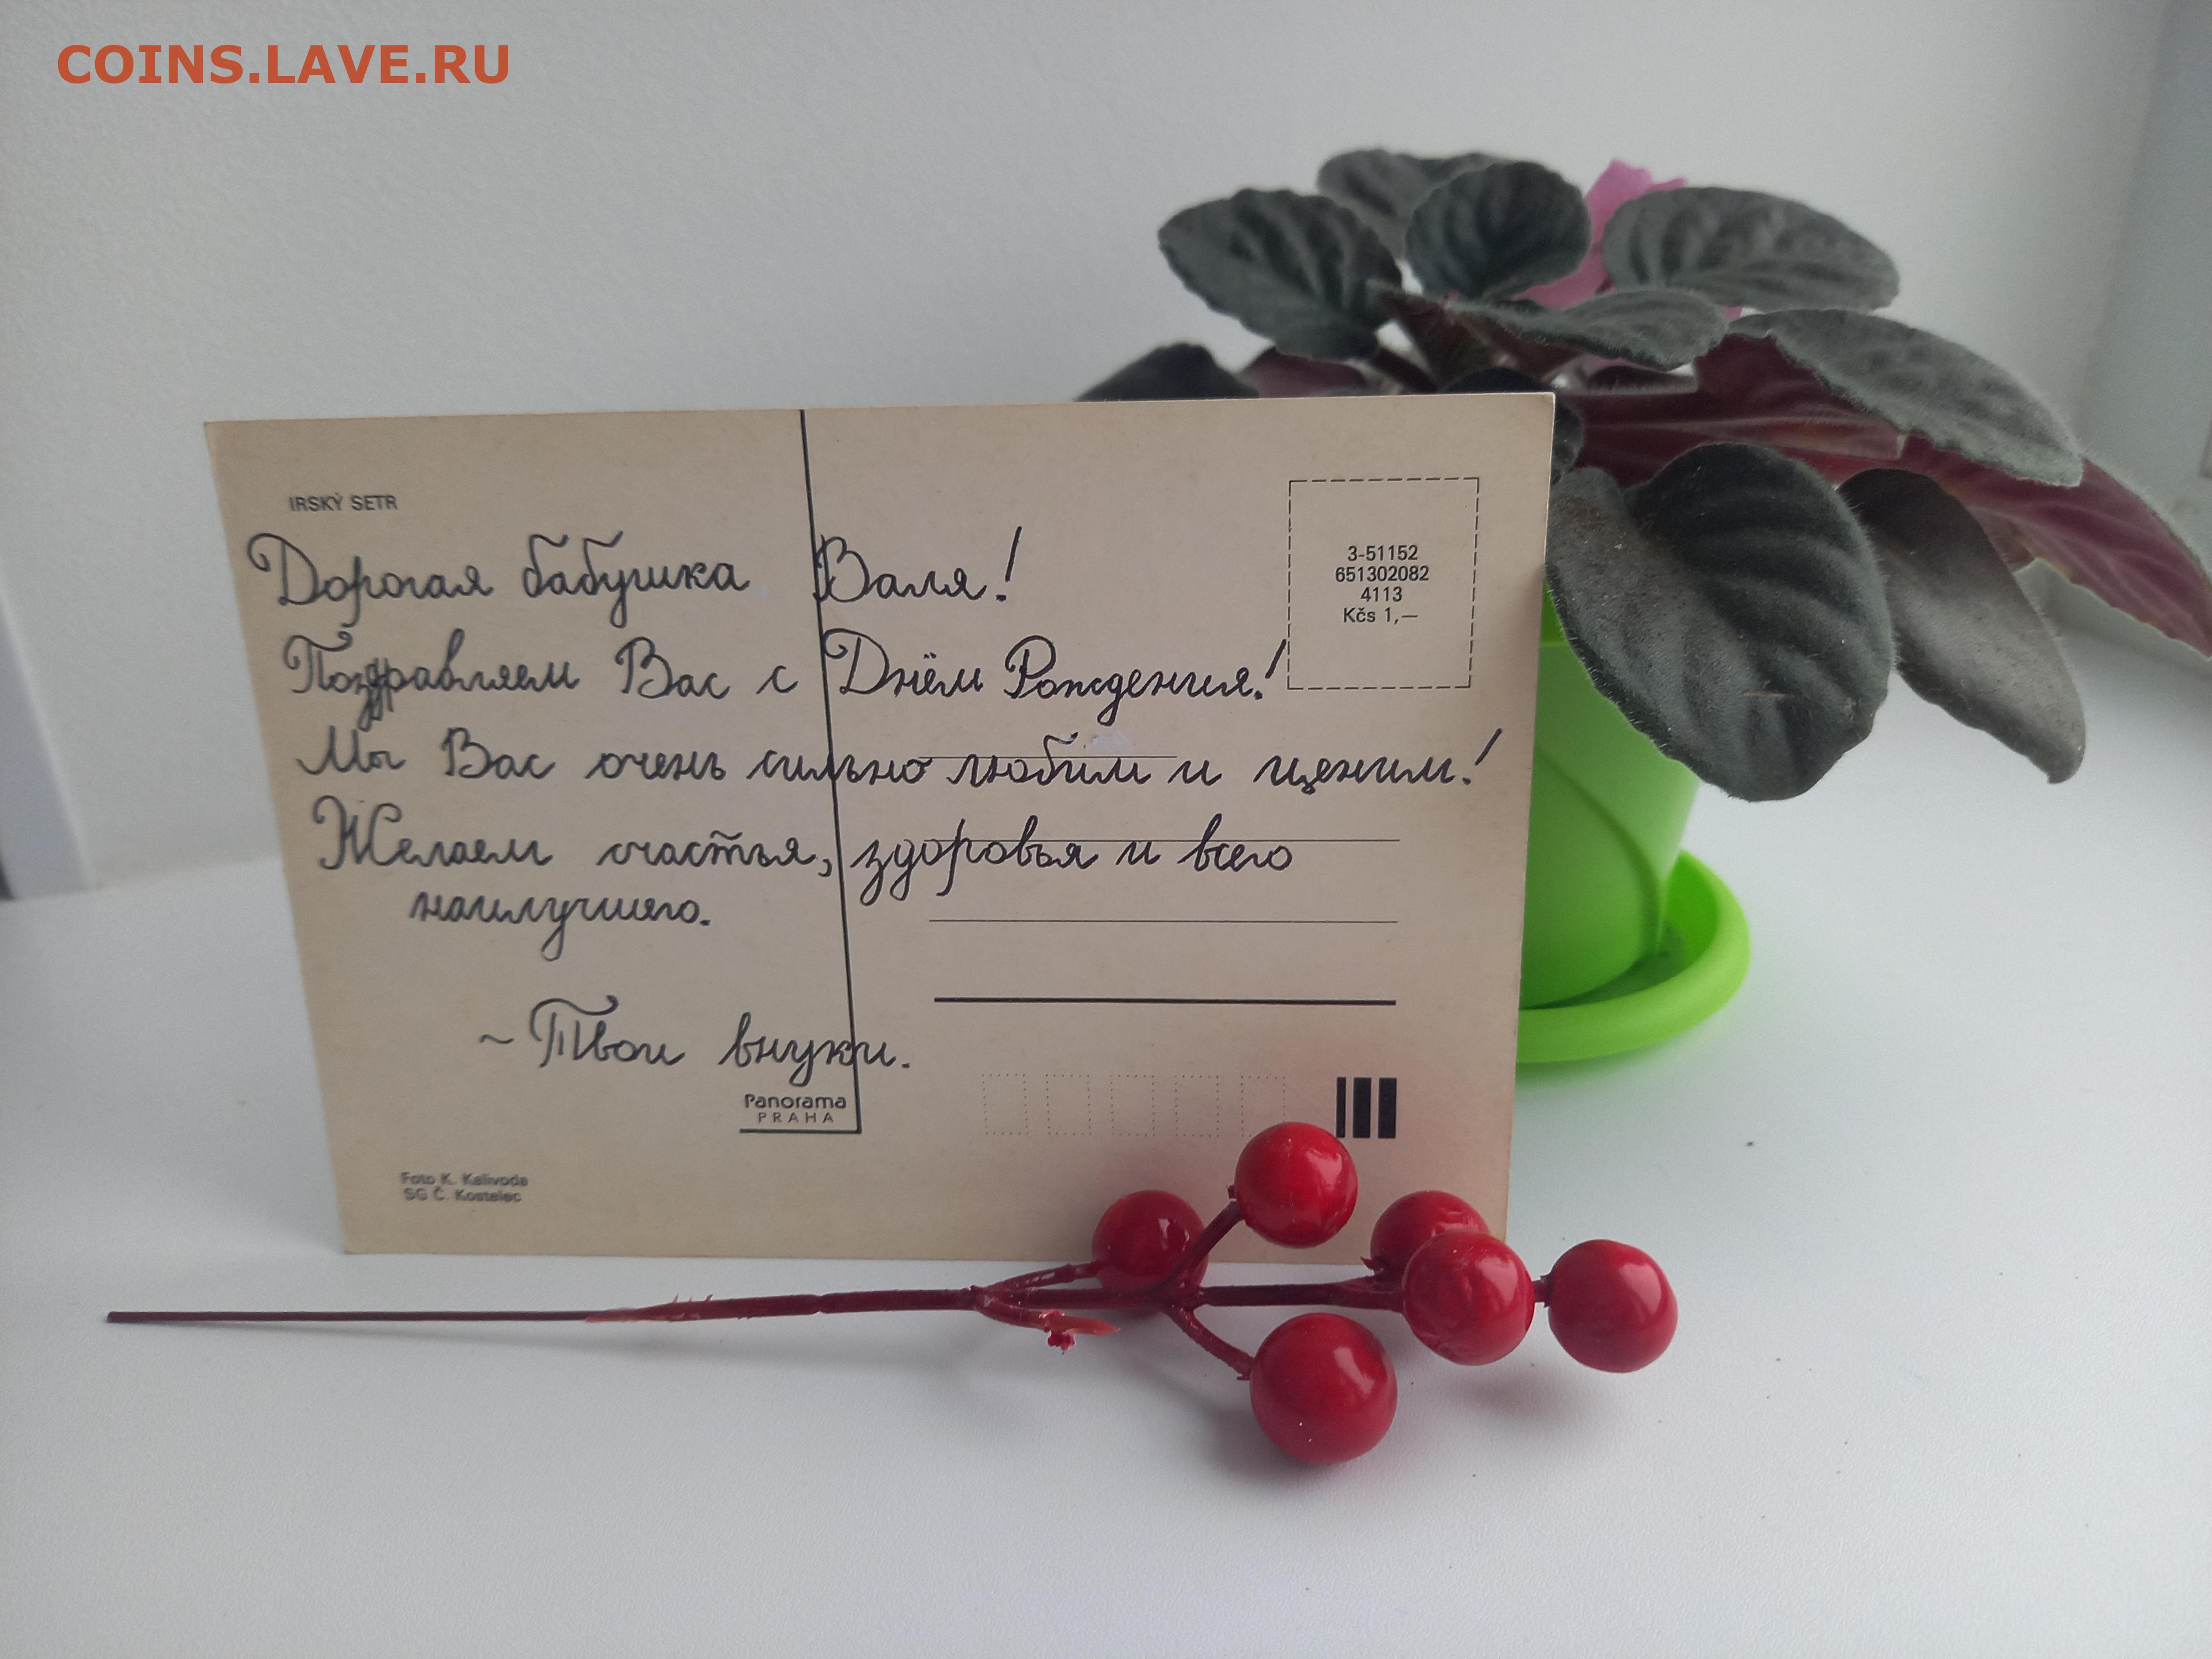 COINS.LAVE.RU
IRSKÝ SETR
3-51152
651302082
4113
Kčs 1,—
Дорогая бабушка Валя!
Поздравляем Вас с Днём Рождения!
Мы Вас очень сильно любим и ценим!
Желаем счастья, здоровья и всего
наилучшего.
~ Твои внуки.
Panorama
PRAHA
Foto K. Kalivoda
SG Č. Kostelec